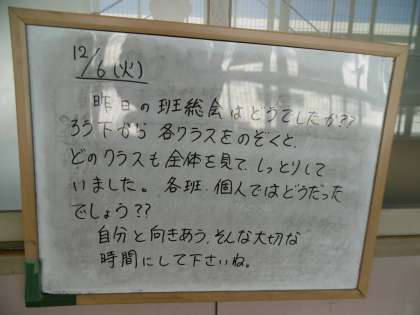 12/6(火)
昨日の班総会はどうでしたか??
ろう下から各クラスをのぞくと、
どのクラスも全体を見て、しっとりして
いました。各班、個人ではどうだった
でしょう??
自分と向きあう、そんな大切な
時間にして下さいね。